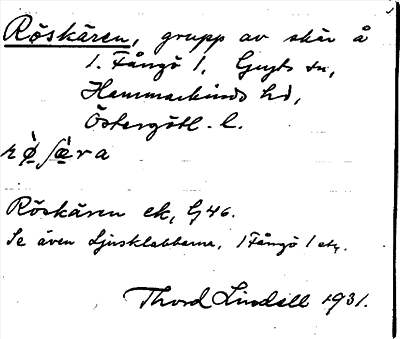 Röskären, grupp av skär å
1. Fångö 1, Gryts sn,
Hammarkinds hd,
Östergötl. l.
Röskären ek, G46.
Se även Ljusklabbarna, 1 Fångö 1 etc.
Thord Lindell 1931.